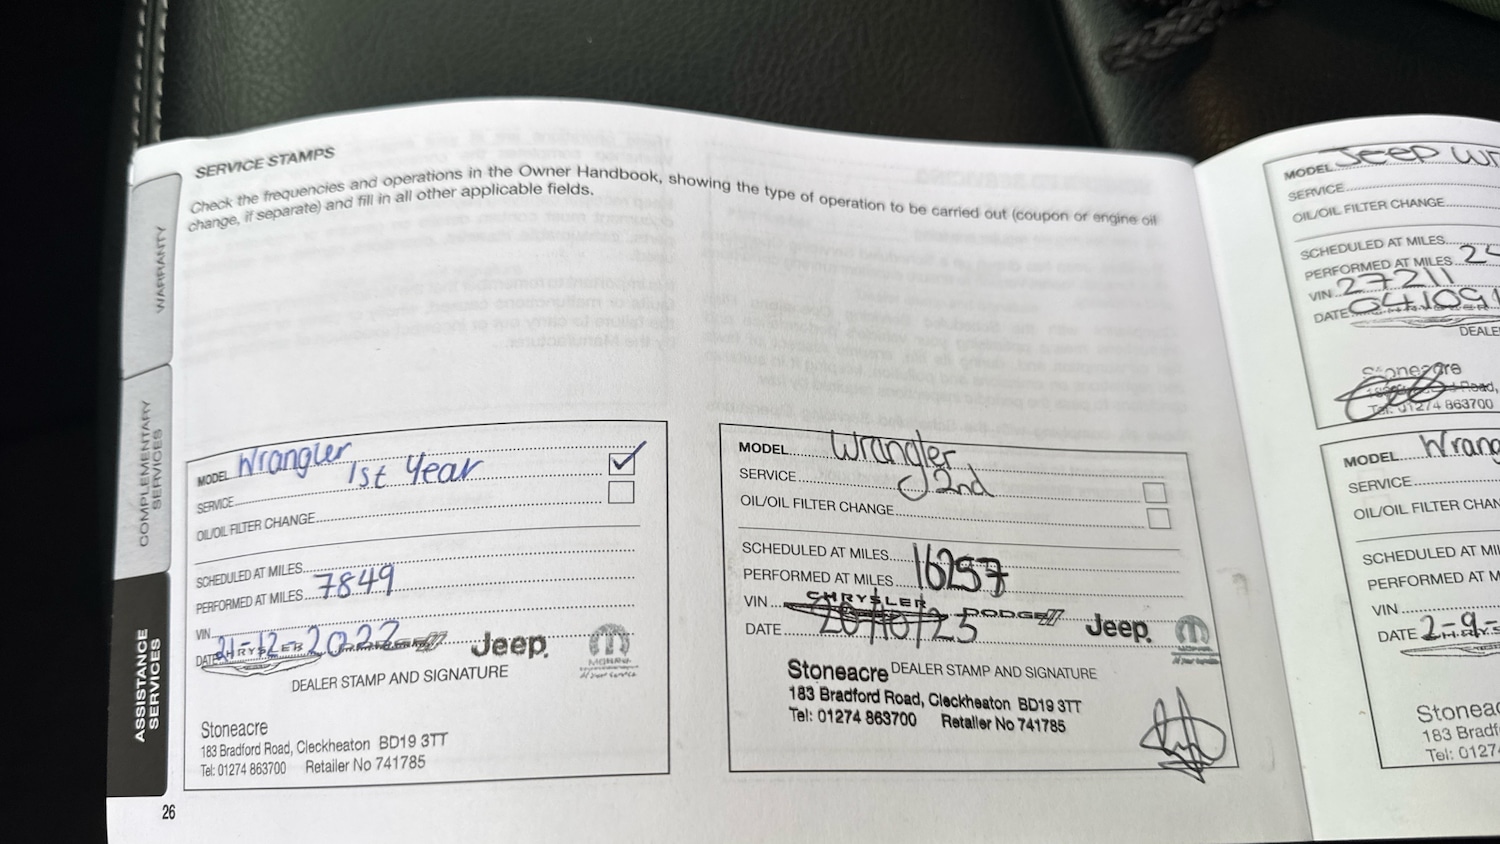 SERVICE STAMPS
Check the frequencies and operations in the Owner Handbook, showing the type of operation to be carried out (coupon or engine oil
change, if separate) and fill in all other applicable fields.
WARRANTY
COMPLEMENTARY
SERVICES
ASSISTANCE
SERVICES
MODEL Wrangler
SERVICE 1st Year
OIL/OIL FILTER CHANGE
SCHEDULED AT MILES
PERFORMED AT MILES 7849
VIN
DATE 21-12-2022
CHRYSLER Jeep
MOPAR
DEALER STAMP AND SIGNATURE
Stoneacre
183 Bradford Road, Cleckheaton BD19 3TT
Tel: 01274 863700 Retailer No 741785
26
MODEL Wrangler
SERVICE 2nd
OIL/OIL FILTER CHANGE
SCHEDULED AT MILES
PERFORMED AT MILES 16257
VIN
CHRYSLER DODGE Jeep
DATE
DEALER STAMP AND SIGNATURE
Stoneacre
183 Bradford Road, Cleckheaton BD19 3TT
Tel: 01274 863700 Retailer No 741785
MODEL Jeep Wr
SERVICE
OIL/OIL FILTER CHANGE
SCHEDULED AT MILES
PERFORMED AT MILES
VIN 27211
DATE
DEALE
Stoneacre
Tel: 01274 863700
MODEL Wrang
SERVICE
OIL/OIL FILTER CHAN
SCHEDULED AT MI
PERFORMED AT M
VIN
DATE 2-9-
Stoneac
183 Bradf
Tel: 0127